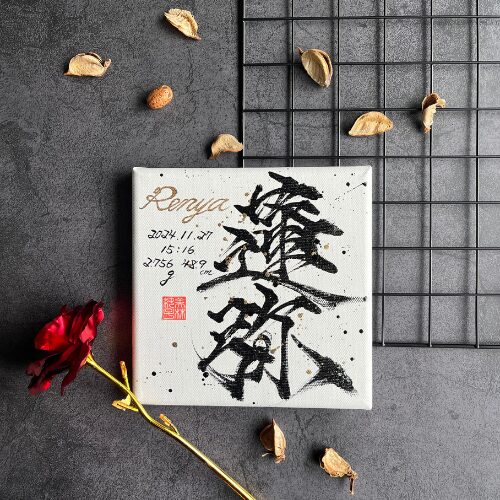 Renya
2024.11.27
15:16
2756 48.9 cm
g
蓮弥